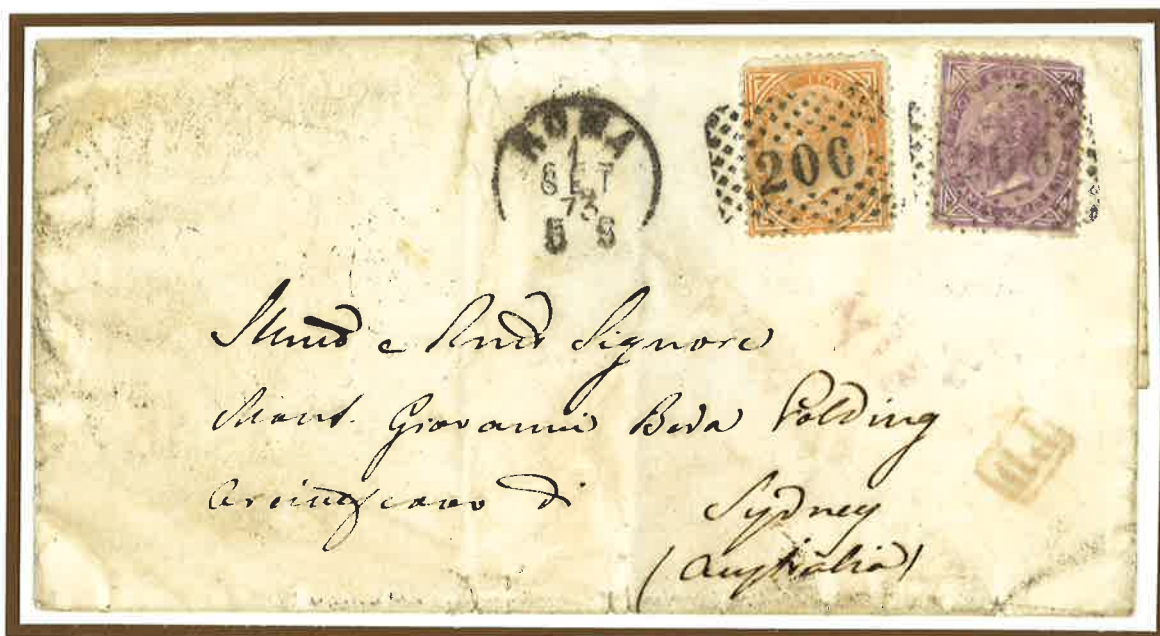 ROMA
1
SET
73
5 S
206
Illmo e Rmo Signore
Mons. Giovanni Beda Polding
Arcivescovo di
Sydney
(Australia)
P.D.